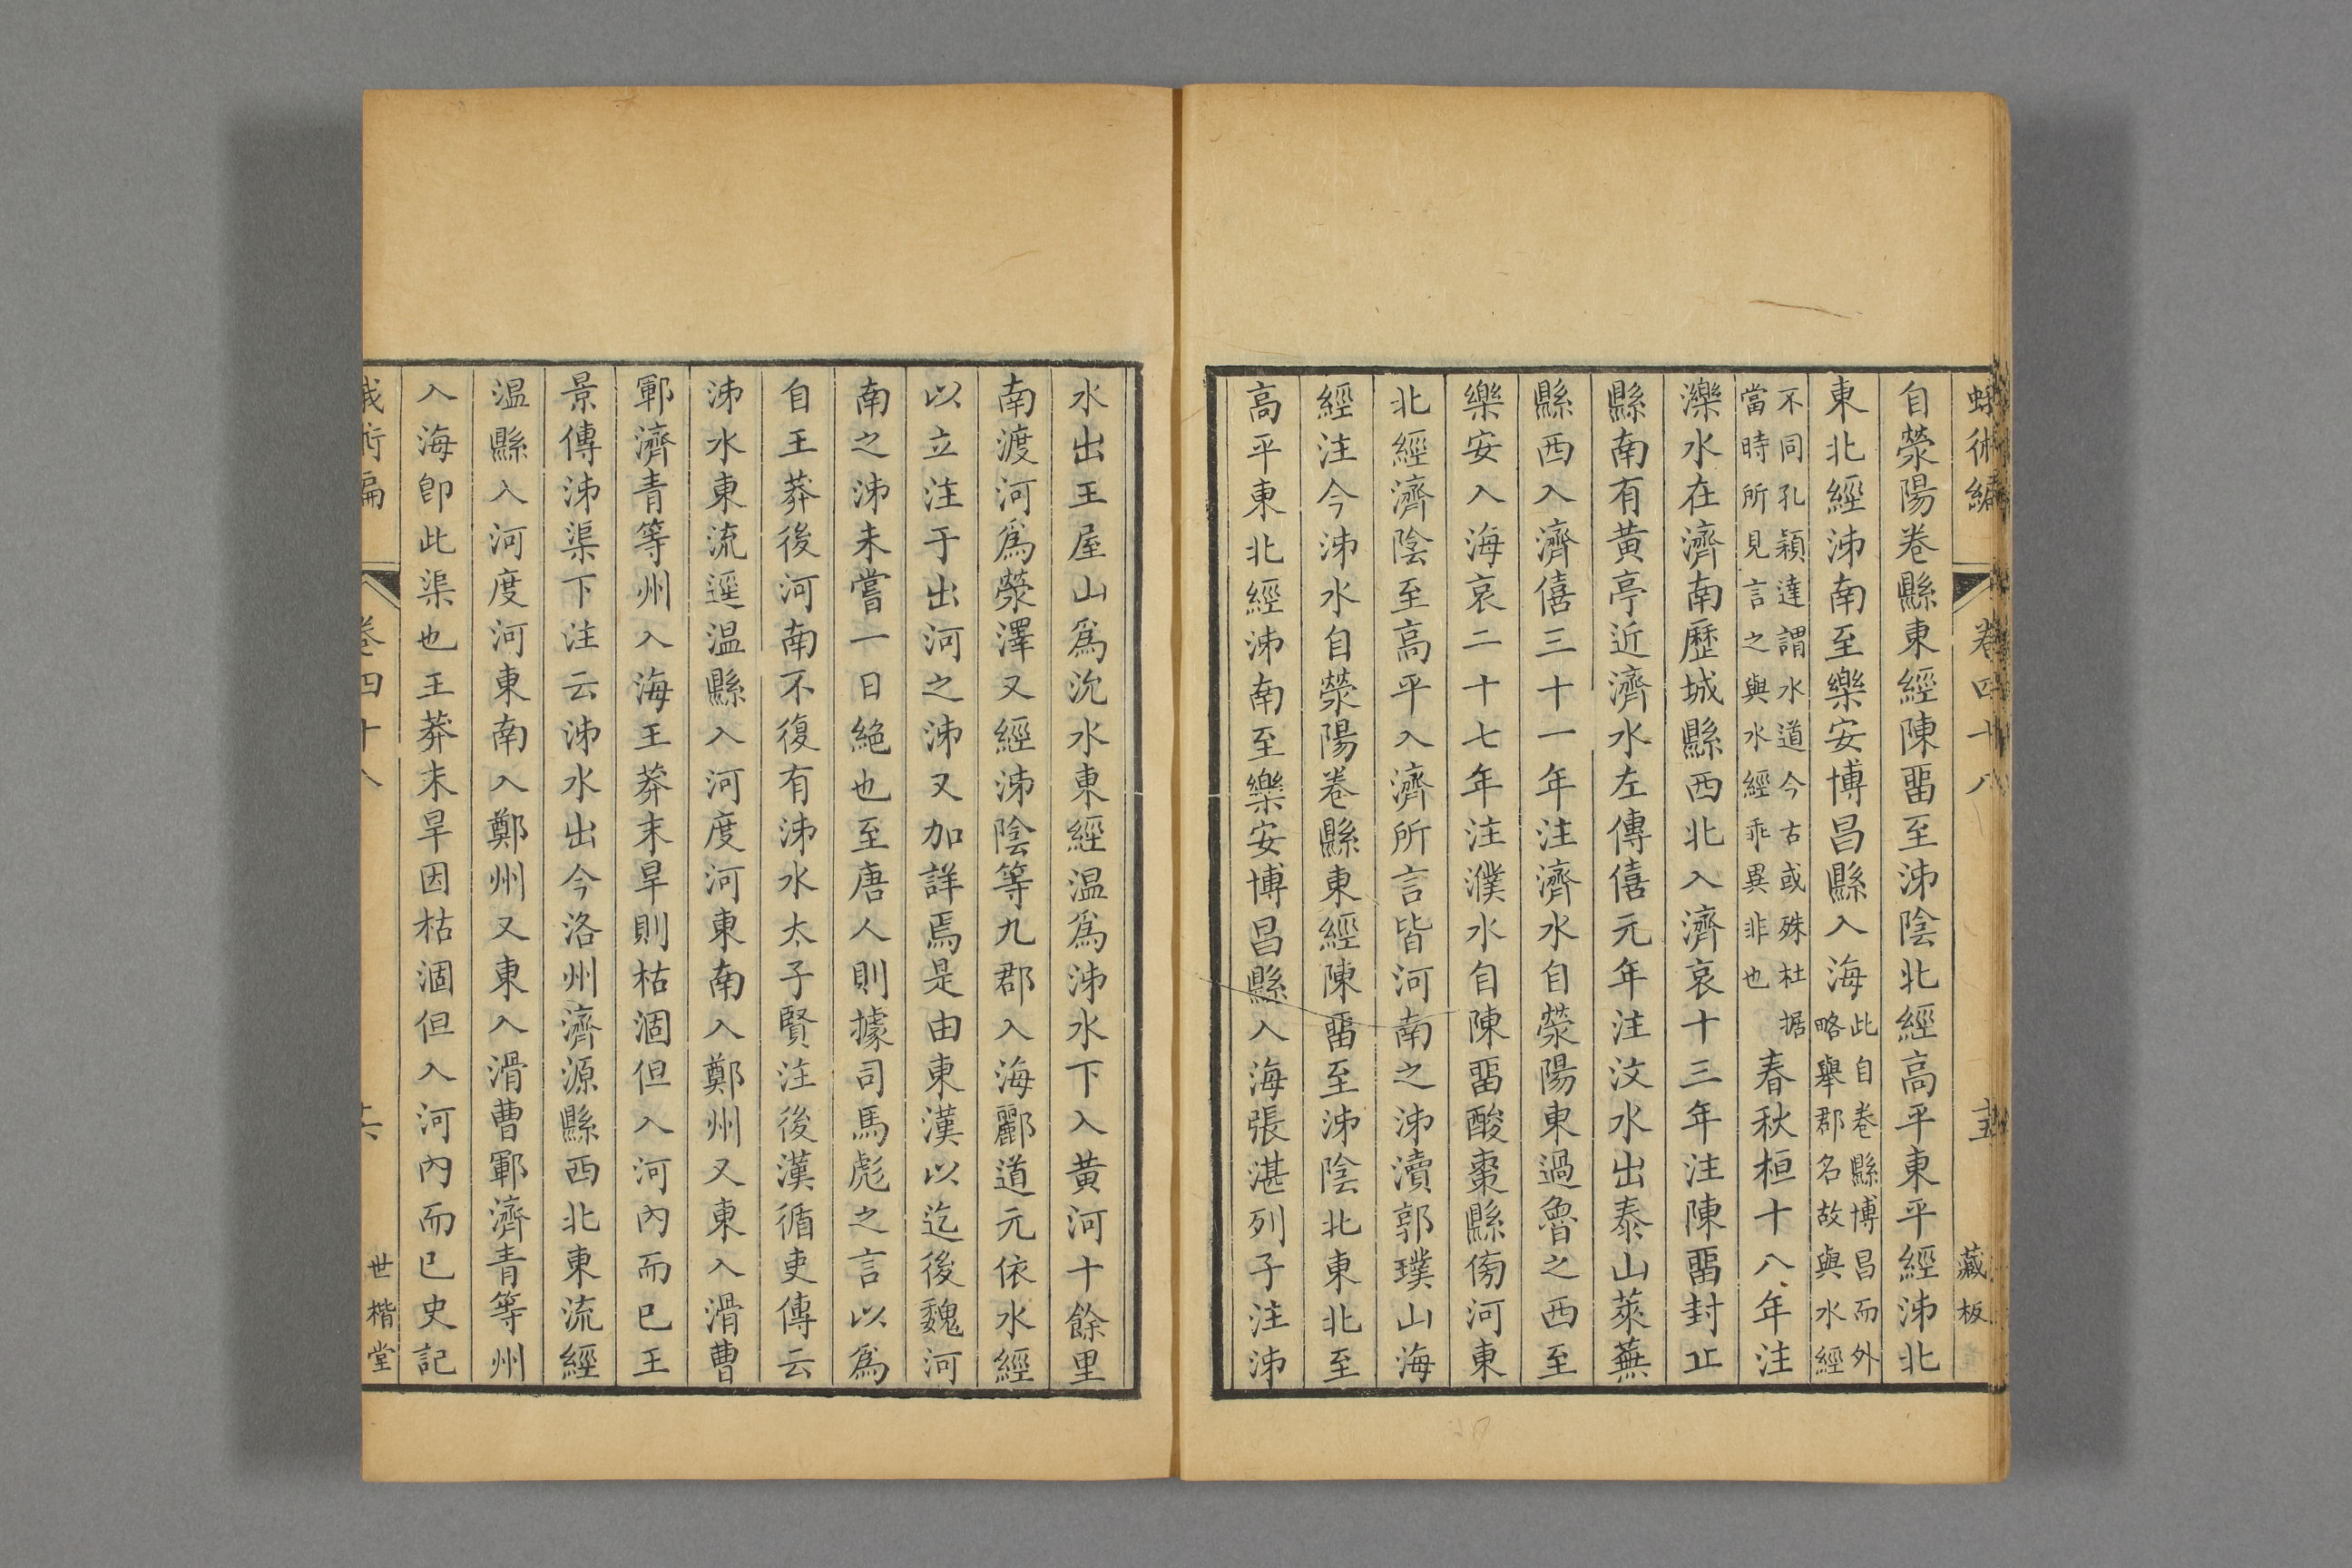 蛾術編 卷四十八 藏板
自滎陽卷縣東經陳畱至泲陰北經高平東平經泲北
東北經泲南至樂安博昌縣入海此自卷縣博昌而外略舉郡名故與水經
不同孔穎達謂水道今古或殊杜据當時所見言之與水經乖異非也春秋桓十八年注
濼水在濟南歷城縣西北入濟哀十三年注陳畱封丘
縣南有黃亭近濟水左傳僖元年注汶水出泰山萊蕪
縣西入濟僖三十一年注濟水自滎陽東過魯之西至
樂安入海哀二十七年注濮水自陳畱酸棗縣傍河東
北經濟陰至高平入濟所言皆河南之泲瀆郭璞山海
經注今泲水自滎陽卷縣東經陳畱至泲陰北東北至
高平東北經泲南至樂安博昌縣入海張湛列子注泲
水出王屋山爲沇水東經温爲泲水下入黃河十餘里
南渡河爲滎澤又經泲陰等九郡入海酈道元依水經
以立注于出河之泲又加詳焉是由東漢以迄後魏河
南之泲未嘗一日絕也至唐人則據司馬彪之言以爲
自王莽後河南不復有泲水太子賢注後漢循吏傳云
泲水東流逕温縣入河度河東南入鄭州又東入滑曹
鄆濟青等州入海王莽末旱則枯涸但入河內而已王
景傳泲渠下注云泲水出今洛州濟源縣西北東流經
温縣入河度河東南入鄭州又東入滑曹鄆濟青等州
入海卽此渠也王莽末旱因枯涸但入河內而已史記
蛾術編 卷四十八 世楷堂